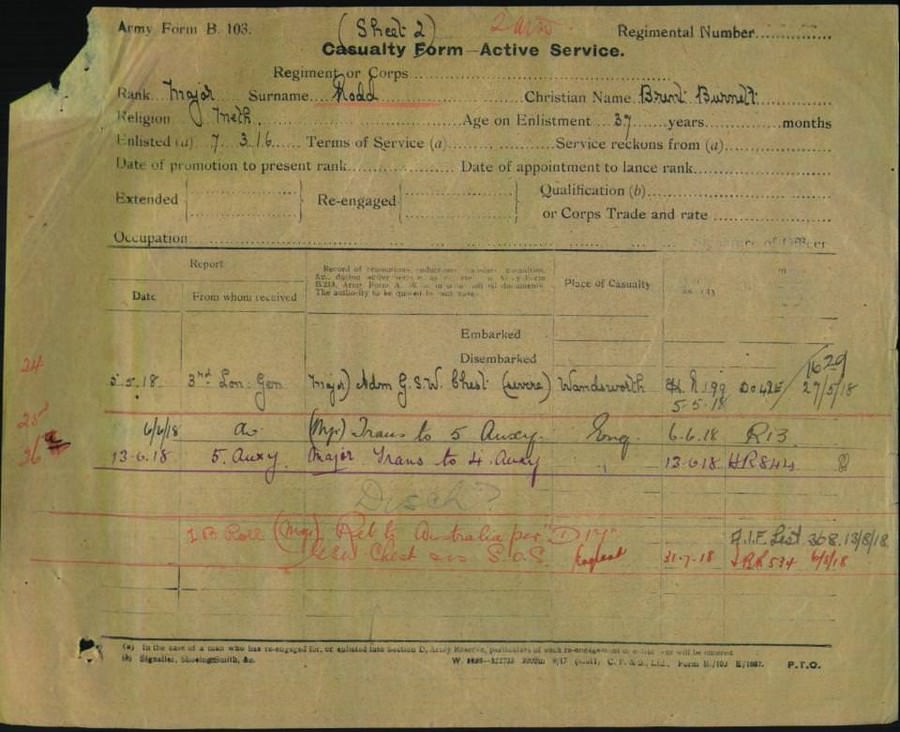 Army Form B. 103.
(Sheet 2)
Regimental Number
Casualty Form—Active Service.
Regiment or Corps
Rank Major Surname Rodd Christian Name Brent Burnett
Religion Meth. Age on Enlistment 37 years months
Enlisted (a) 7 3 16 Terms of Service (a) Service reckons from (a)
Date of promotion to present rank Date of appointment to lance rank
Extended Re-engaged Qualification (b)
or Corps Trade and rate
Occupation
Report
Date From whom received Place of Casualty
Embarked
Disembarked
24
1629
5.5.18 3rd Lon. Gen Major) Adm G.S.W. Chest (severe) Wandsworth 27/5/18
5-5-18
25
6/6/18 do (Mjr) Trans to 5 Auxy. Eng 6.6.18 R13
36
13-6-18 5. Auxy Major Trans to 4 Auxy 13-6-18 HR844
Disch?
1B Roll (Mjr) Ret to Australia per "D 17"
A.I.F. List 368. 13/8/18
Chest England 31-7-18 534 6/8/18
(a) In the case of a man who has re-engaged for, or enlisted into Section D, Army Reserve, particulars of such re-engagement or enlistment will be entered
(b) Signaller, Shoeing-Smith, &c.
P.T.O.